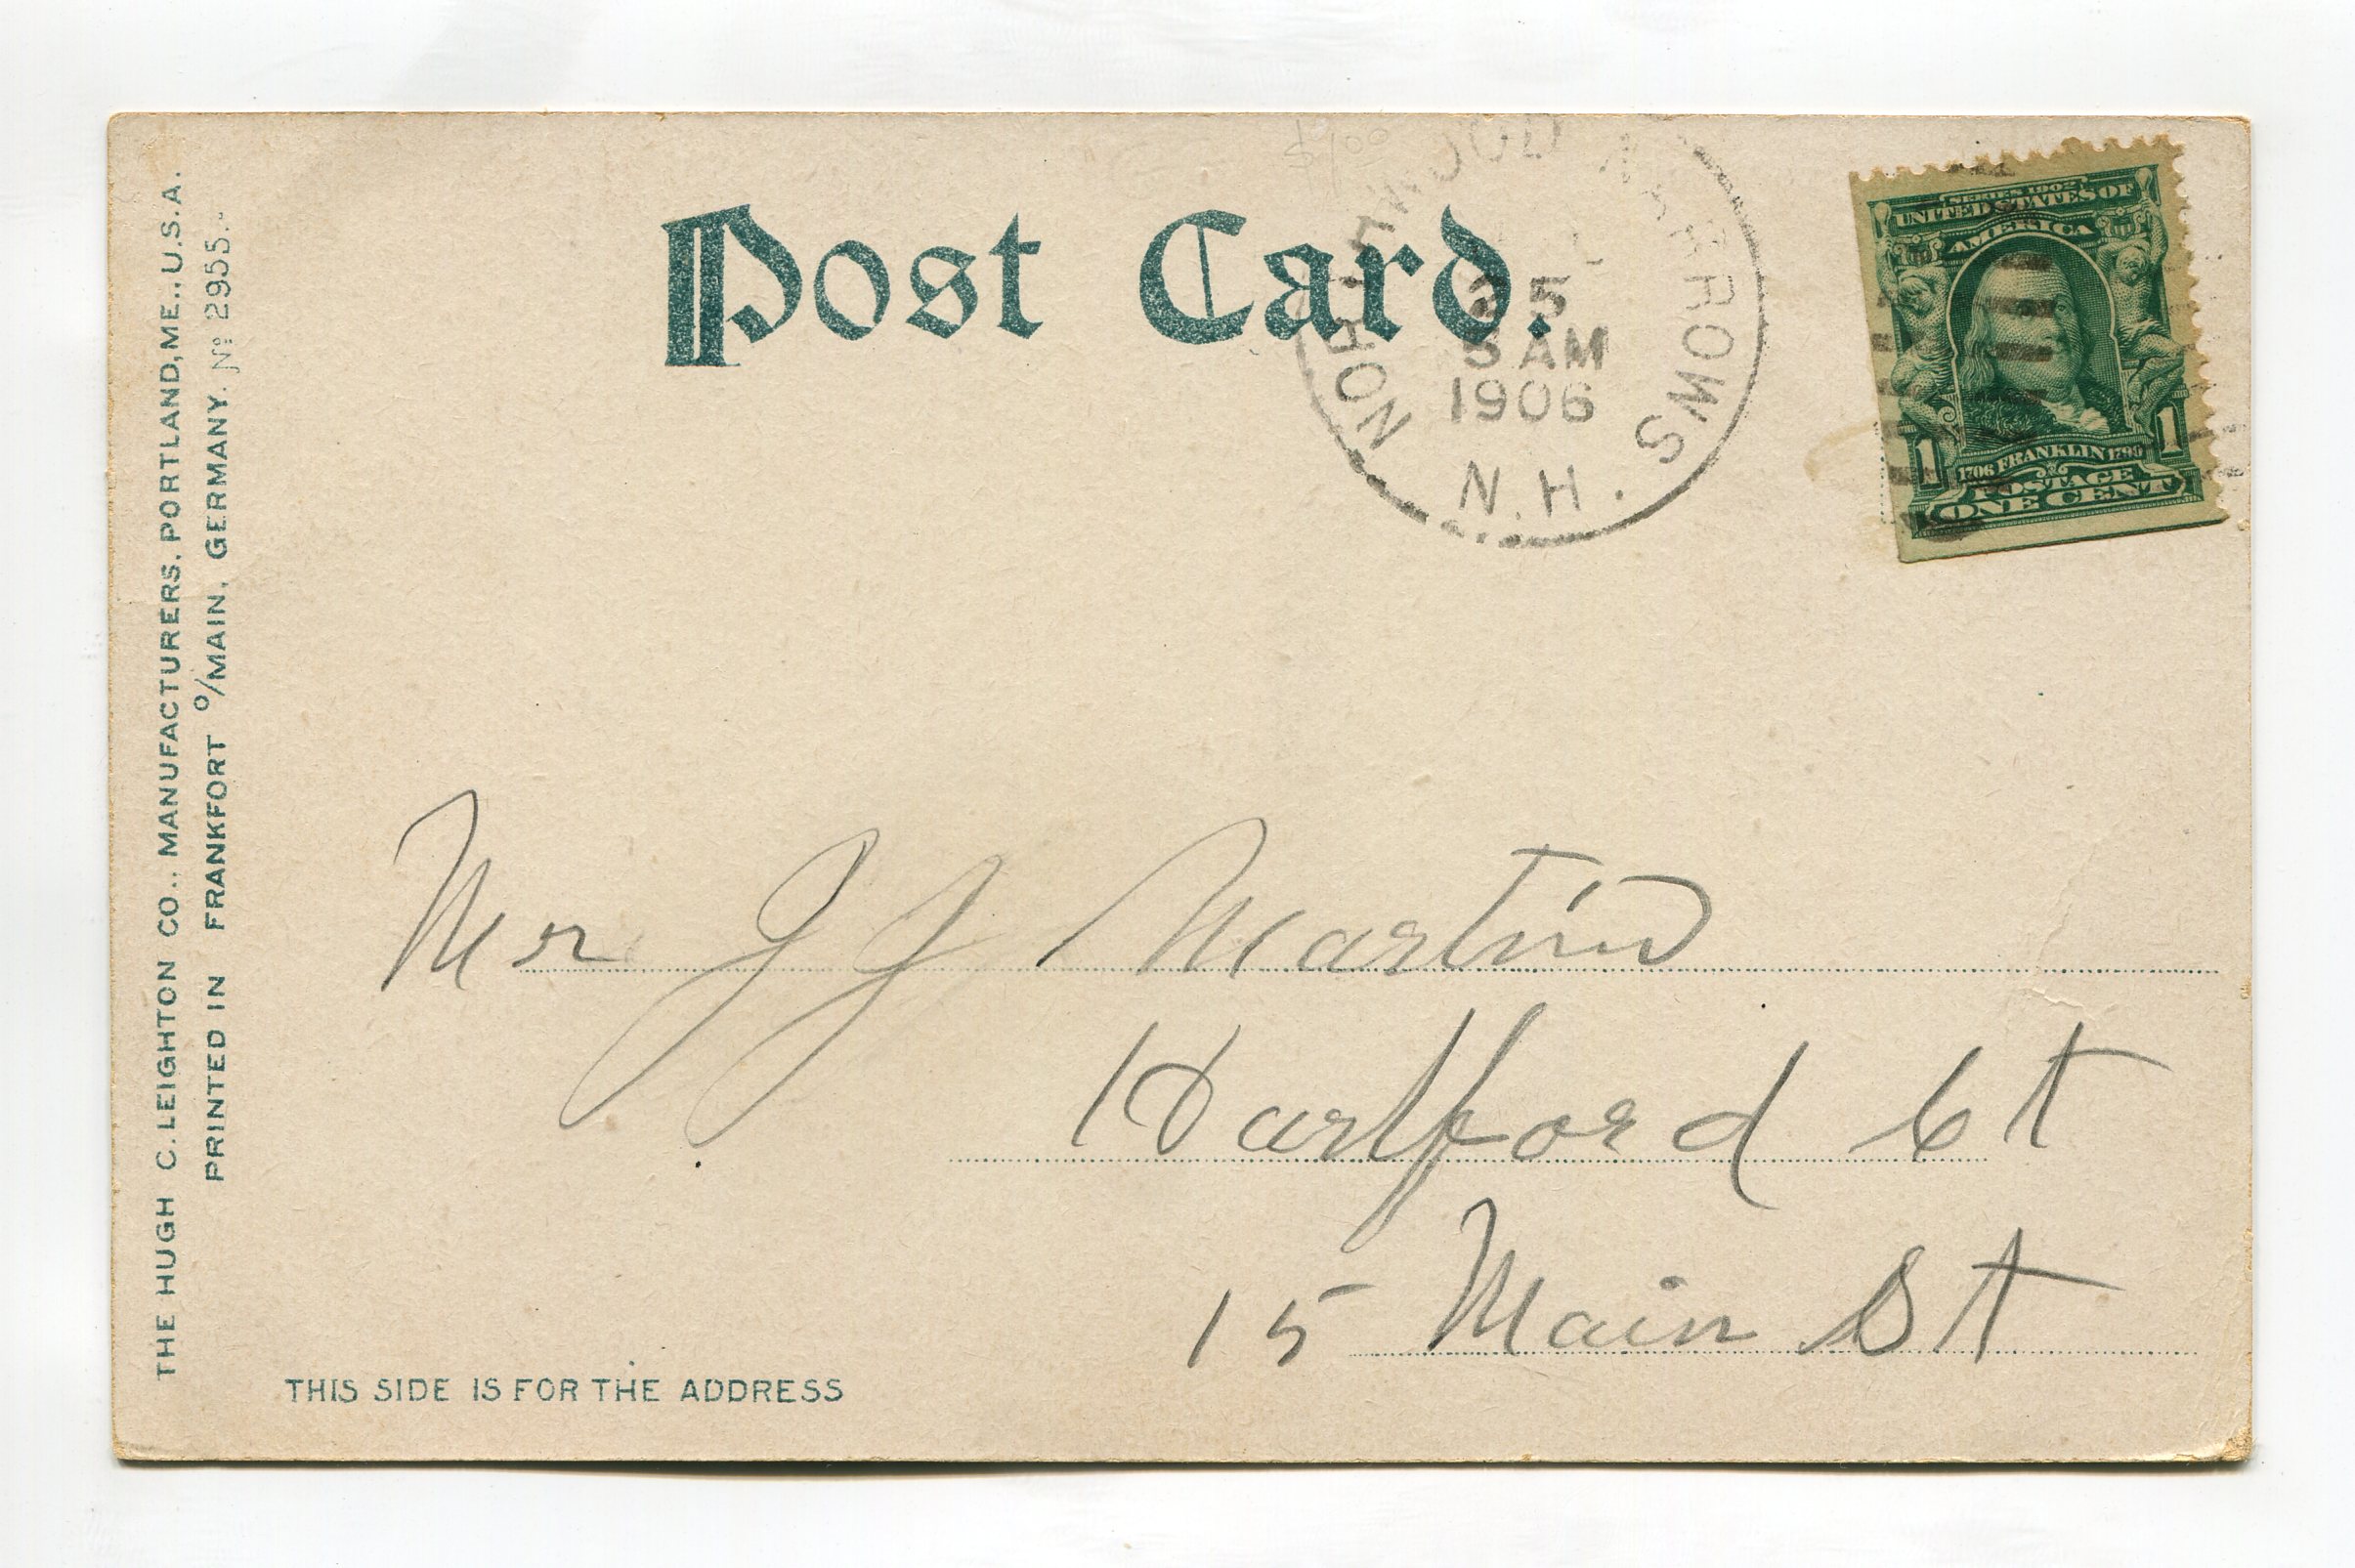 THE HUGH C. LEIGHTON CO., MANUFACTURERS, PORTLAND, ME., U.S.A.
PRINTED IN FRANKFORT o/MAIN, GERMANY. No 2955.
$1.00
Post Card.
NORTHWOOD NARROWS
25
5 AM
1906
N.H.
SERIES 1902
UNITED STATES OF
AMERICA
1 1
1706 FRANKLIN 1790
POSTAGE
ONE CENT
Mr J J Martin
Hartford Ct
15 Main St
THIS SIDE IS FOR THE ADDRESS